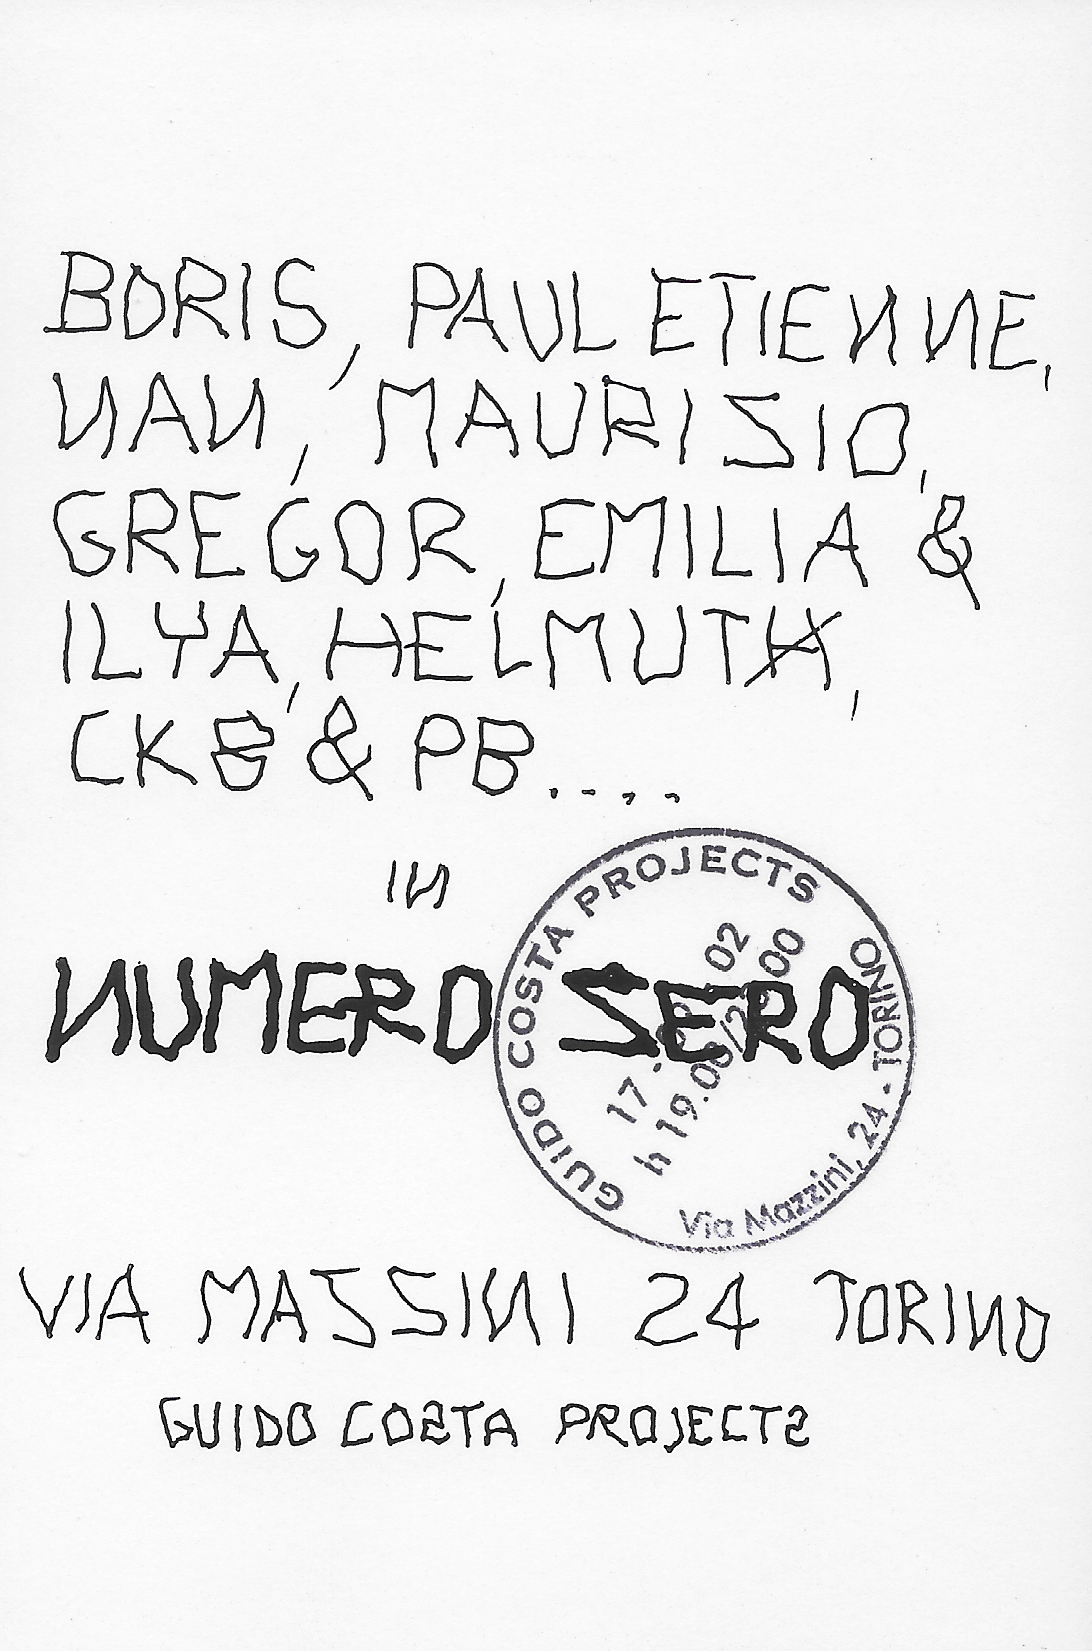 BORIS, PAUL ETIENNE,
NAN, MAURISIO,
GREGOR, EMILIA &
ILYA, HELMUTH,
CKB & PB....
IN
NUMERO SERO
VIA MASSINI 24 TORINO
GUIDO COSTA PROJECTS
GUIDO COSTA PROJECTS
17 02
h 19.00/ 00
Via Mazzini, 24 - TORINO